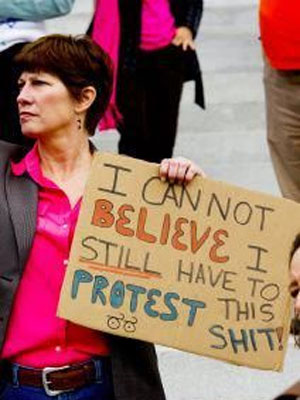 I CANNOT
BELIEVE I
STILL HAVE TO
PROTEST THIS
SHIT!